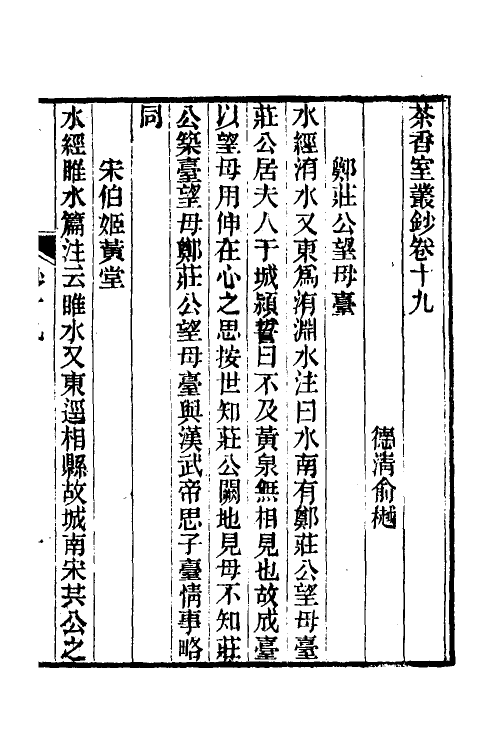 茶香室叢鈔卷十九
德清俞樾
鄭莊公望母臺
水經洧水又東為洧淵水注曰水南有鄭莊公望母臺
莊公居夫人于城潁誓曰不及黃泉無相見也故成臺
以望母用伸在心之思按世知莊公闕地見母不知莊
公築臺望母鄭莊公望母臺與漢武帝思子臺情事略
同
宋伯姬黃堂
水經睢水篇注云睢水又東逕相縣故城南宋共公之